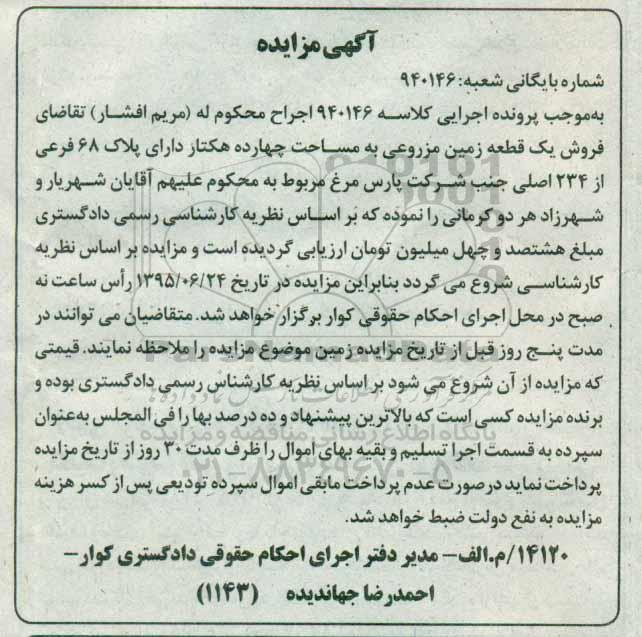 آگهی مزایده
شماره بایگانی شعبه: ۹۴۰۱۴۶
به‌موجب پرونده اجرایی کلاسه ۹۴۰۱۴۶ اجراح محکوم له (مریم افشار) تقاضای
فروش یک قطعه زمین مزروعی به مساحت چهارده هکتار دارای پلاک ۶۸ فرعی
از ۲۳۴ اصلی جنب شرکت پارس مرغ مربوط به محکوم علیهم آقایان شهریار و
شهرزاد هر دو کرمانی را نموده که بر اساس نظریه کارشناسی رسمی دادگستری
مبلغ هشتصد و چهل میلیون تومان ارزیابی گردیده است و مزایده بر اساس نظریه
کارشناسی شروع می گردد بنابراین مزایده در تاریخ ۱۳۹۵/۰۶/۲۴ رأس ساعت نه
صبح در محل اجرای احکام حقوقی کوار برگزار خواهد شد. متقاضیان می توانند در
مدت پنج روز قبل از تاریخ مزایده زمین موضوع مزایده را ملاحظه نمایند. قیمتی
که مزایده از آن شروع می شود بر اساس نظریه کارشناس رسمی دادگستری بوده و
برنده مزایده کسی است که بالاترین پیشنهاد و ده درصد بها را فی المجلس به‌عنوان
سپرده به قسمت اجرا تسلیم و بقیه بهای اموال را ظرف مدت ۳۰ روز از تاریخ مزایده
پرداخت نماید درصورت عدم پرداخت مابقی اموال سپرده تودیعی پس از کسر هزینه
مزایده به نفع دولت ضبط خواهد شد.
۱۴۱۲۰/م.الف- مدیر دفتر اجرای احکام حقوقی دادگستری کوار-
احمدرضا جهاندیده (۱۱۴۳)
پایگاه اطلاع رسانی مناقصه و مزایده
۰۲۱-۸۸۳۴۹۶۷۰-۵